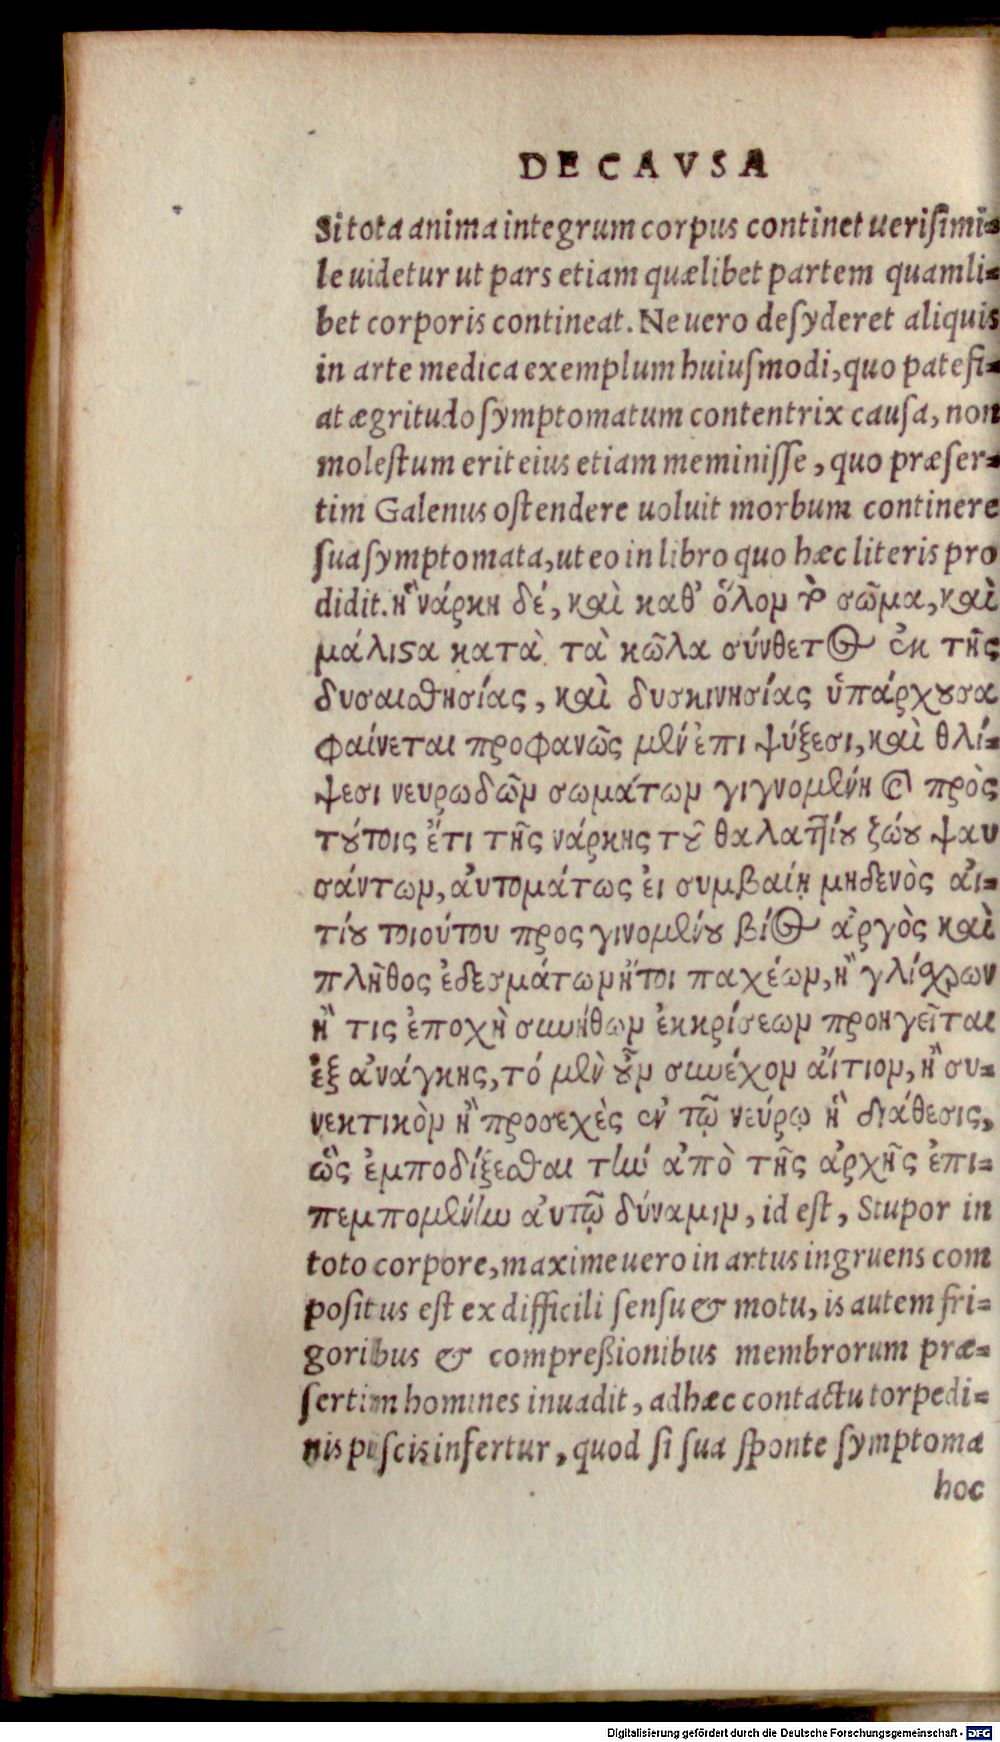 DE CAVSA
Si tota anima integrum corpus continet uerisimi-
le uidetur ut pars etiam quælibet partem quamli-
bet corporis contineat. Ne uero desyderet aliquis
in arte medica exemplum huiusmodi, quo patefi-
at ægritudo symptomatum contentrix causa, non
molestum erit eius etiam meminisse, quo præser-
tim Galenus ostendere uoluit morbum continere
sua symptomata, ut eo in libro quo hæc literis pro
didit. ἡ νάρκη δέ, καὶ καθ’ ὅλομ τὸ σῶμα, καὶ
μάλιϛα κατὰ τὰ κῶλα σύνθετος ἐκ τῆς
δυσαισθησίας, καὶ δυσκινησίας ὑπάρχουσα
φαίνεται προφανῶς μὲν ἐπι ψύξεσι, καὶ θλί-
ψεσι νευρωδῶμ σωμάτωμ γιγνομένη καὶ πρὸς
τούτοις ἔτι τῆς νάρκης τοῦ θαλαττίου ζώου ψαυ
σάντωμ, ἀυτομάτως ἐι συμβαίῃ μηδενὸς ἀι-
τίου τοιούτου προς γινομένου βίος ἀργὸς καὶ
πλῆθος ἐδεσμάτωμ ἤτοι παχέωμ, ἢ γλίσχρων
ἤ τις ἐποχὴ συνήθωμ ἐκκρίσεωμ προηγεῖται
ἐξ ἀνάγκης, τό μὲν οὖμ συνέχομ ἄιτιομ, ἢ συ-
νεκτικὸμ ἢ προσεχὲς ἐν τῷ νεύρῳ ἡ διάθεσις,
ὥς ἐμποδίξεσθαι τὴν ἀπὸ τῆς ἀρχῆς ἐπι-
πεμπομένην ἀυτῷ δύναμιμ, id est, Stupor in
toto corpore, maxime uero in artus ingruens com
positus est ex difficili sensu & motu, is autem fri-
goribus & compreßionibus membrorum præ-
sertim homines inuadit, adhæc contactu torpedi-
nis piscis infertur, quod si sua sponte symptoma
hoc
Digitalisierung gefördert durch die Deutsche Forschungsgemeinschaft - DFG